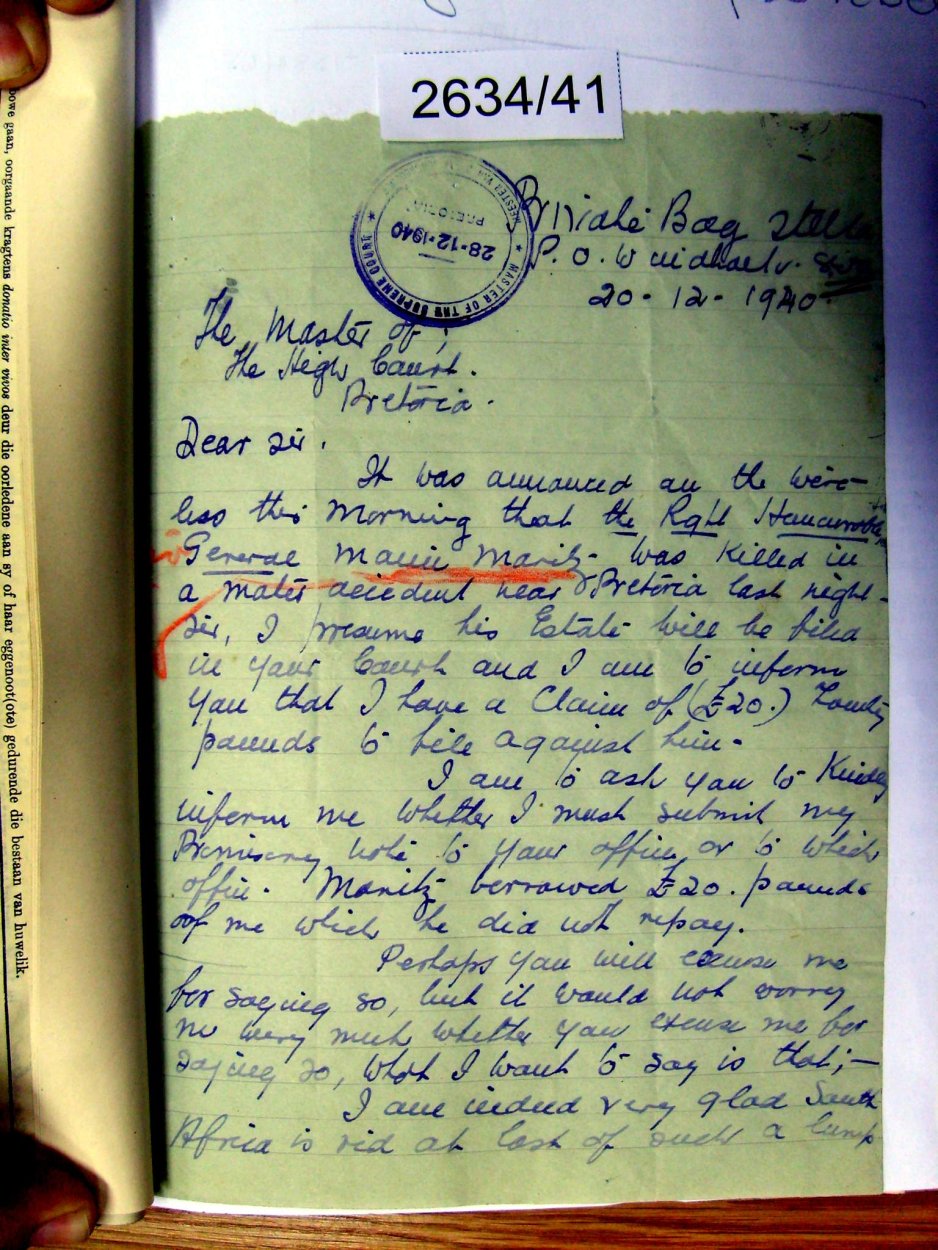 2634/41
MASTER OF THE SUPREME COURT
MEESTER VAN
PRETORIA
28-12-1940
Private Bag
P. O. Windhoek.
20-12-1940.
The Master of;
The High Court.
Pretoria.
Dear Sir.
It was announced on the wire-
less this morning that the Rght Honourable
General Manie Maritz was killed in
a motor accident near Pretoria last night-
Sir, I presume his Estate will be filed
in your Court and I am to inform
you that I have a Claim of (£20.) Twenty
pounds to file against him-
I am to ask you to Kindly
inform me whether I must submit my
Promissory note to your office, or to which
office. Maritz borrowed £20. pounds
of me which he did not repay.
Perhaps you will excuse me
for saying so, but it would not worry
me very much whether you excuse me for
saying so, what I want to say is that;—
I am indeed very glad South
Africa is rid at last of such a
oowe gaan, oorgaande kragtens donatio inter vivos deur die oorledene aan sy of haar eggenoot(ote) gedurende die bestaan van huwelik.